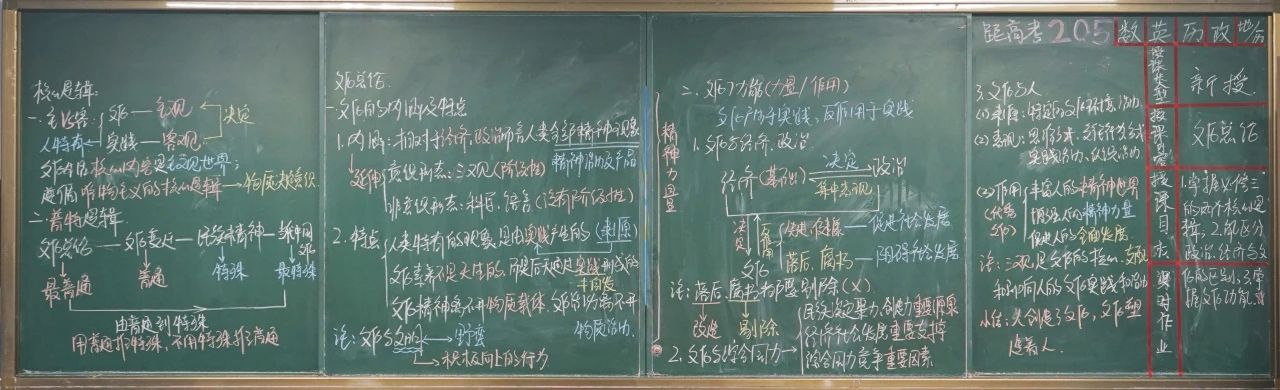 核心思辑
一. 主 文化 — 主观 决定
人特有 实践 — 客观
文化的核心内容是主观世界;
遵循唯物主义的核心思辑 → 物质决定意识
二. 普特思辑
文化总论 — 文化 — 民族精神 — 新中国文化
最普通 普通 特殊 最特殊
由普通到特殊
用普通推特殊, 不用特殊推普通
文化总论
一. 文化的内涵及特点
1. 内涵: 相对于经济、政治而言人类全部精神现象
延伸 意识形态: 三观 (阶级性) 精神活动及产品
非意识形态: 科学、语言 (没有阶级性)
2. 特点 人类特有的现象, 是由实践产生的 (来源)
文化素养不是天生的, 而是后天通过实践形成的
文化精神离不开物质载体 文化活动离不开物质活动
注: 文化≠文明 → 野蛮
→ 积极向上的行为
精神力量
二. 文化功能 (力量/作用)
文化产生于实践, 反作用于实践
1. 文化与经济、政治
经济 (基础) 决定 政治
集中表现
决定 反作用 先进、健康 — 促进社会发展
文化 落后、腐朽 — 阻碍社会发展
注: 落后、腐朽都要剔除 (×)
改造 剔除
2. 文化与综合国力 → 民族凝聚力、创造力重要源泉
经济社会发展重要支撑
综合国力竞争重要因素
3. 文化与人
(1) 来源: 特定的文化环境、活动
(2) 表现:
实践活动、认识活动
(3) 作用 丰富人的精神世界
(优秀文化) 增强人的精神力量
促进人的全面发展
注: 三观是文化的核心,
和影响人的文化实践和活动
小结: 人创造了文化, 文化塑造着人.
距高考 205 数 英 历 政 地
授课类型 新授
授课内容 文化总论
授课目标 1. 掌握必修三的两个核心思辑; 2. 能区分政治、经济与文化
课时作业